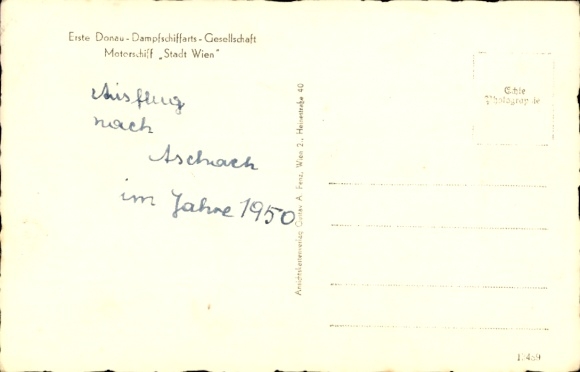 Erste Donau-Dampfschiffarts-Gesellschaft
Motorschiff „Stadt Wien"
Ausflug
nach
Aschach
im Jahre 1950
Echte
Photographie
Ansichtskartenverlag Gustav A. Fenz, Wien 2., Heinestraße 40